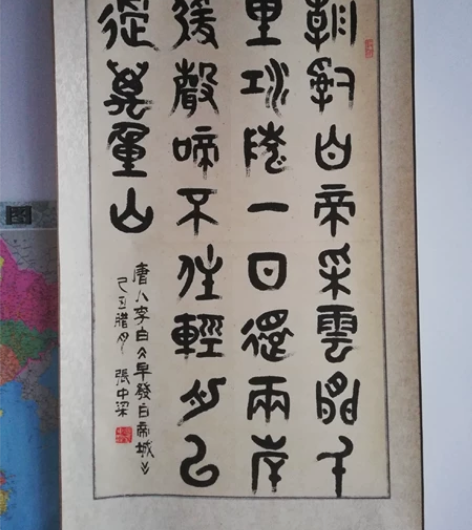 朝辭白帝采雲間千
里江陵一日還兩岸
猿聲啼不住輕舟已
過萬重山
唐人李白《早發白帝城》
己丑臘月 張中梁
图